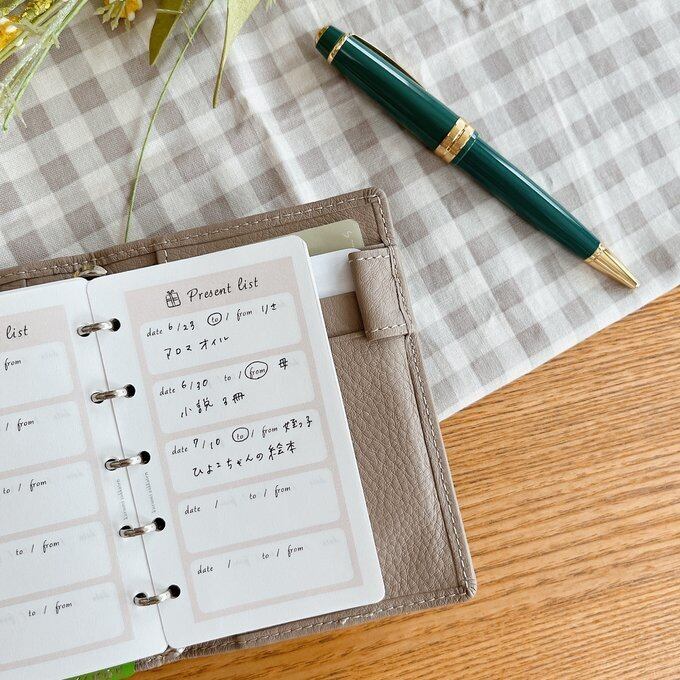 list
from
from
to / from
to / from
to / from
Present list
date 6/23 to / from りさ
アロマオイル
date 6/30 to / from 母
小説3冊
date 7/10 to / from 姪っ子
ひよこちゃんの絵本
date / to / from
date / to / from